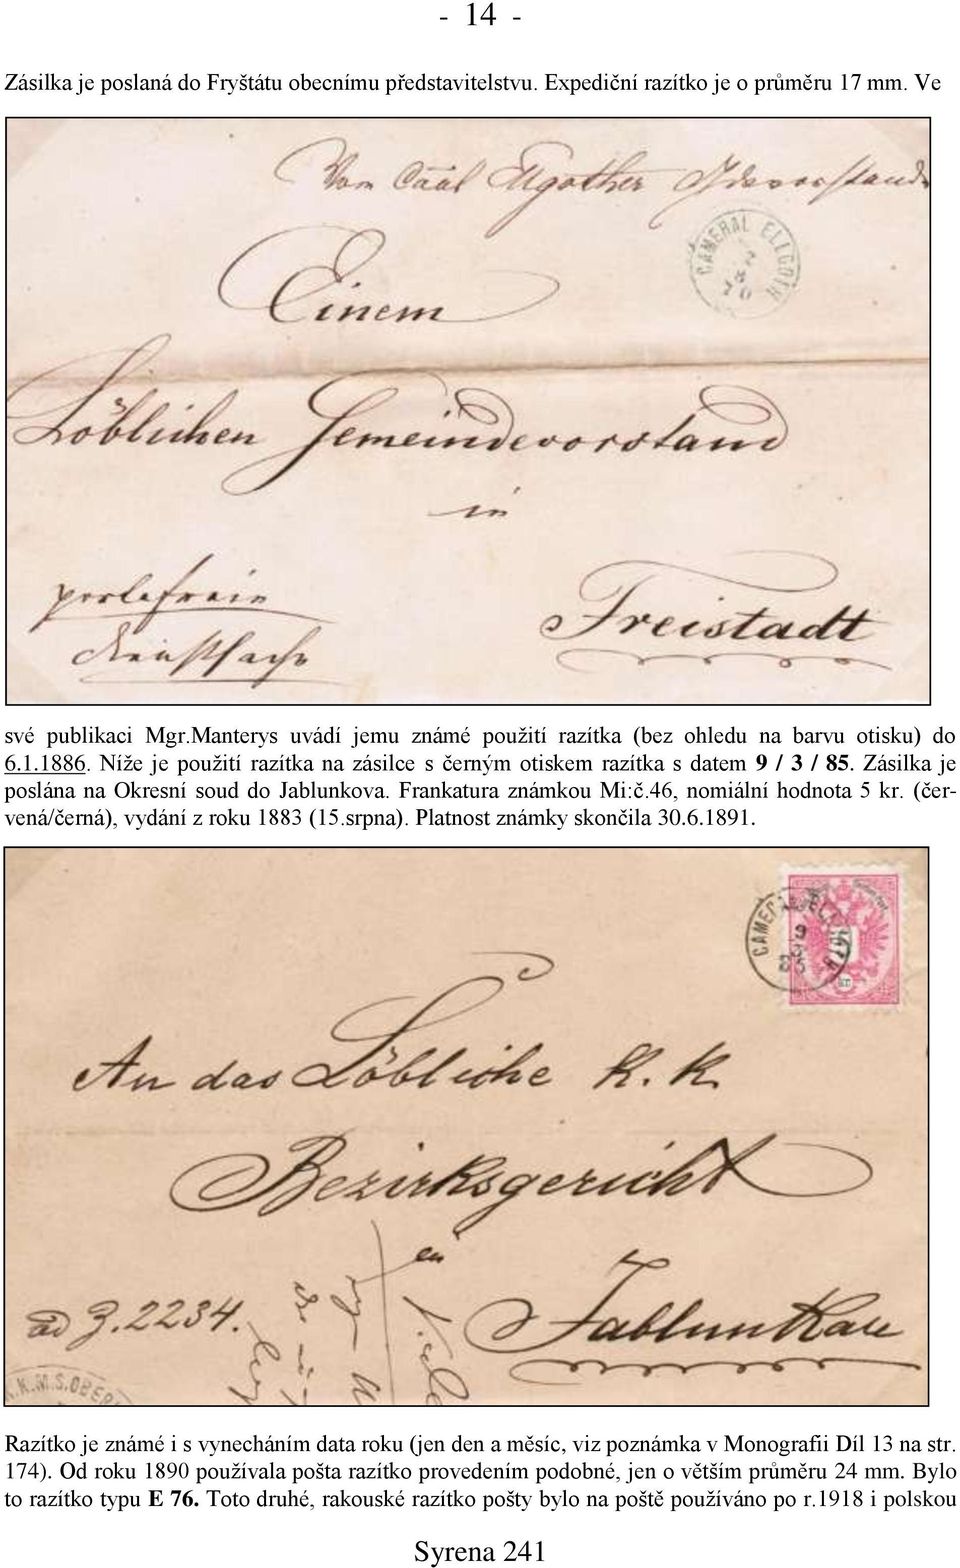 - 14 -
Zásilka je poslaná do Fryštátu obecnímu představitelstvu. Expediční razítko je o průměru 17 mm. Ve
Vom
CAMERAL ELLGOTH
Einem
Löblichen Gemeindevorstand
in
portofrein
Freistadt
Dienstsache
své publikaci Mgr.Manterys uvádí jemu známé použití razítka (bez ohledu na barvu otisku) do
6.1.1886. Níže je použití razítka na zásilce s černým otiskem razítka s datem 9 / 3 / 85. Zásilka je
poslána na Okresní soud do Jablunkova. Frankatura známkou Mi:č.46, nomiální hodnota 5 kr. (čer-
vená/černá), vydání z roku 1883 (15.srpna). Platnost známky skončila 30.6.1891.
CAMERAL ELLGOTH
9
3
85
An das Löbliche K. K.
Bezirksgericht
in
ad Z. 2234.
Jablunkau
K.K.M.S.OBER
Razítko je známé i s vynecháním data roku (jen den a měsíc, viz poznámka v Monografii Díl 13 na str.
174). Od roku 1890 používala pošta razítko provedením podobné, jen o větším průměru 24 mm. Bylo
to razítko typu E 76. Toto druhé, rakouské razítko pošty bylo na poště používáno po r.1918 i polskou
Syrena 241